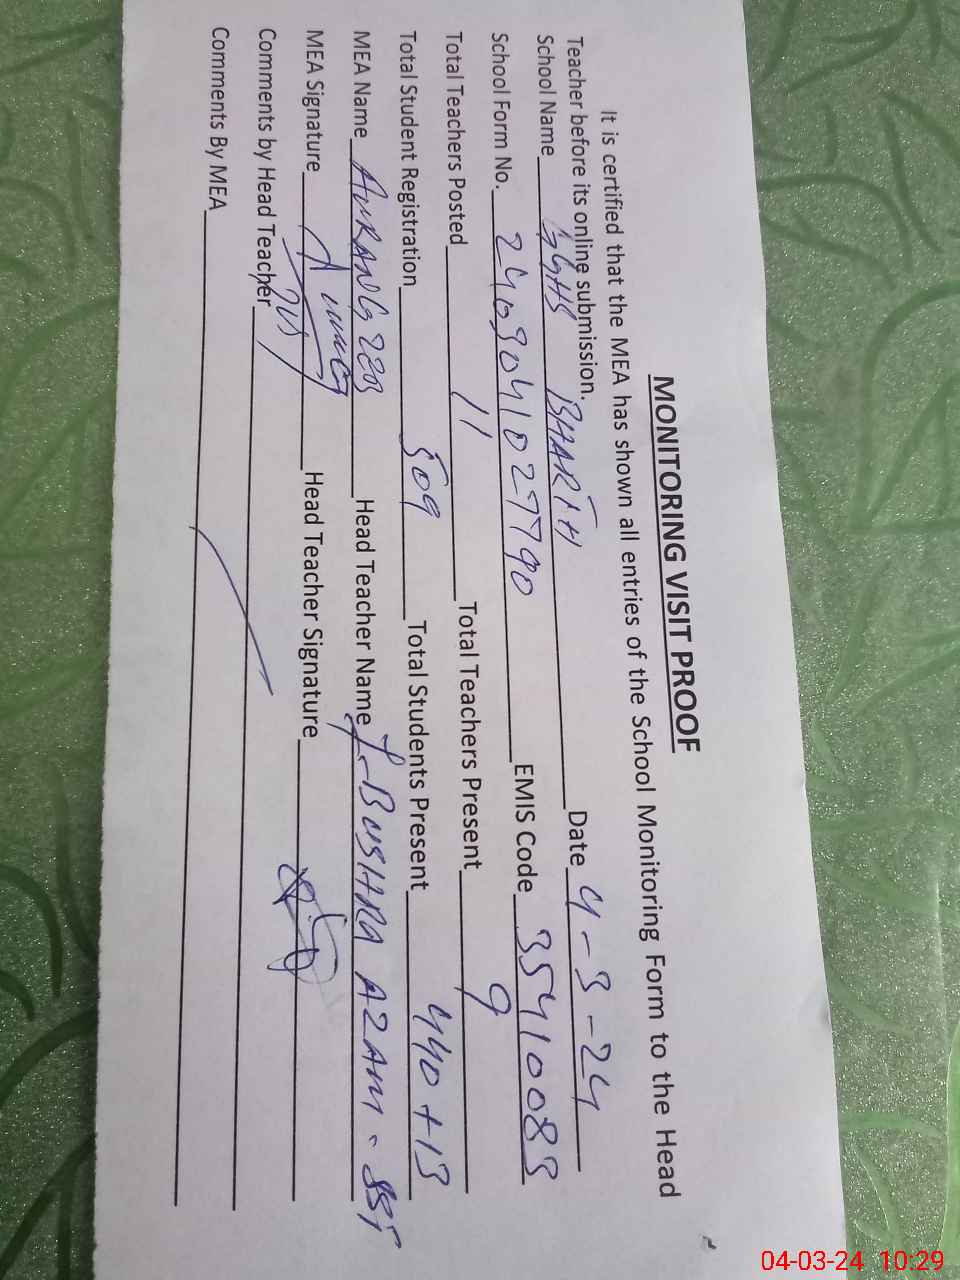 MONITORING VISIT PROOF
It is certified that the MEA has shown all entries of the School Monitoring Form to the Head
Teacher before its online submission.
School Name GGHS BHARTH Date 4-3-24
School Form No. 2403041027790 EMIS Code 35410083
Total Teachers Posted 11 Total Teachers Present 9
Total Student Registration 509 Total Students Present 440+13
MEA Name AURANGZEB Head Teacher Name BUSHRA AZAM - SST
MEA Signature Head Teacher Signature
Comments by Head Teacher
Comments By MEA
04-03-24 10:29